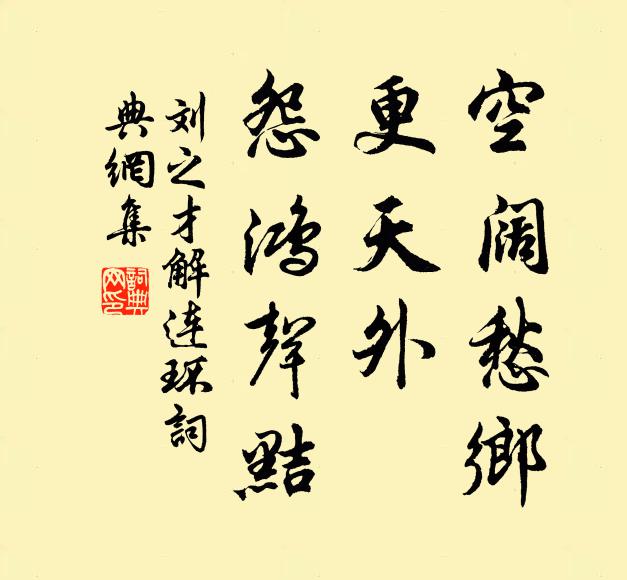 空闊愁鄉
更天外
怨鴻聲黠
刘之才解連环詞
典網集
詞典
网印